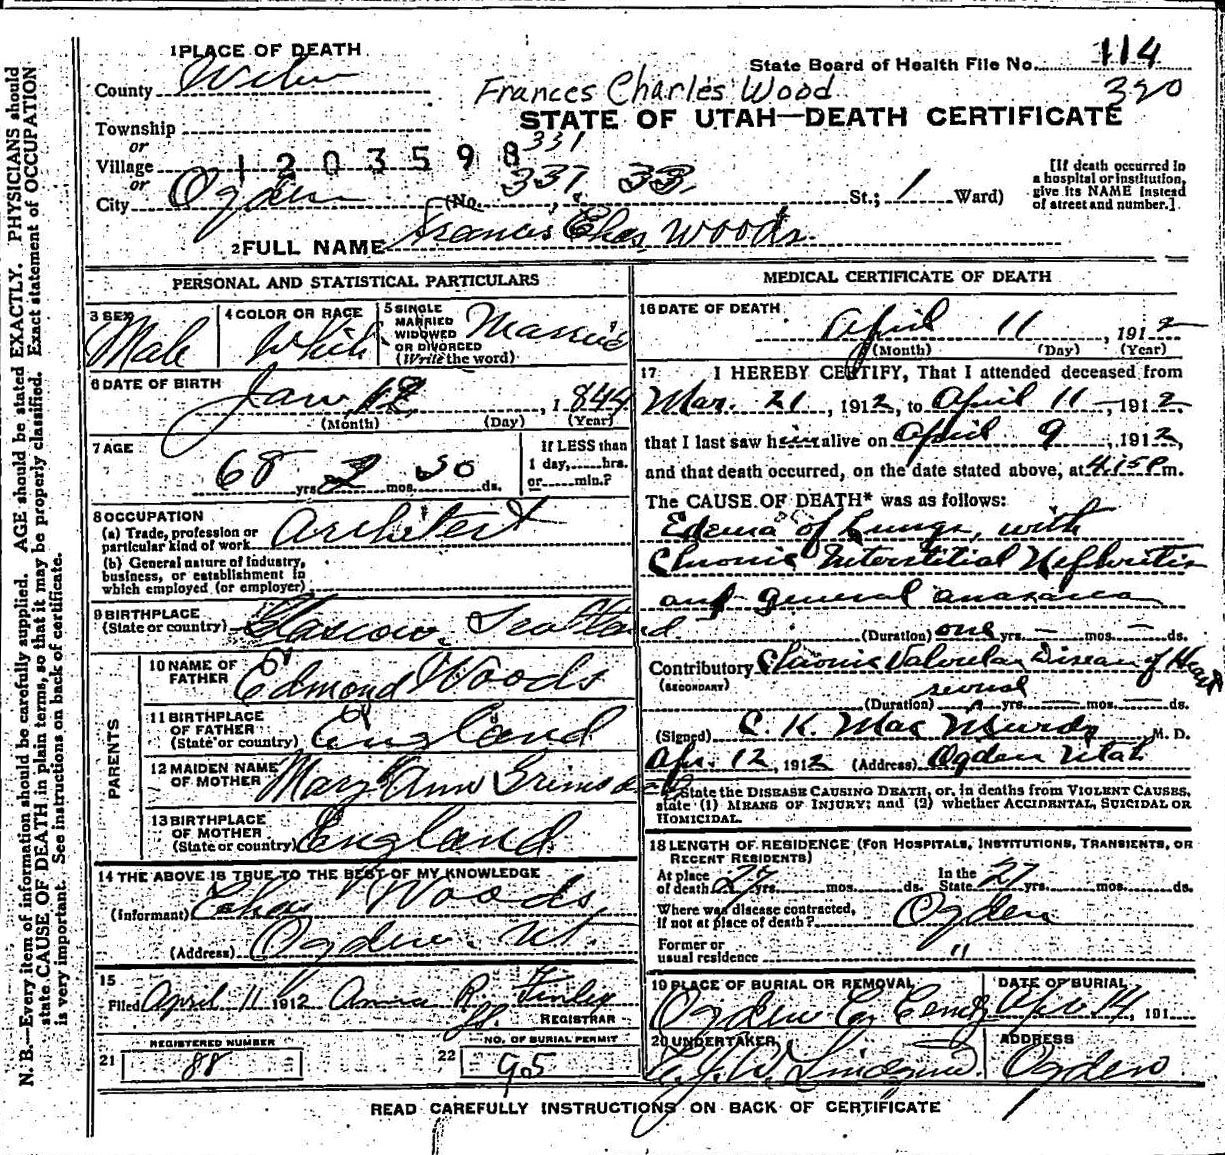 N. B.—Every item of information should be carefully supplied. AGE should be stated EXACTLY. PHYSICIANS should
state CAUSE OF DEATH in plain terms, so that it may be properly classified. Exact statement of OCCUPATION
is very important. See instructions on back of certificate.
1 PLACE OF DEATH
County Weber
State Board of Health File No. 114
320
Frances Charles Wood
STATE OF UTAH—DEATH CERTIFICATE
Township
or
Village
1203598
331
or
City Ogden (No. 337, 33 St.; 1 Ward)
[If death occurred in
a hospital or institution,
give its NAME instead
of street and number.]
2 FULL NAME Francis Chas Woods
PERSONAL AND STATISTICAL PARTICULARS
3 SEX
Male
4 COLOR OR RACE
White
5 SINGLE
MARRIED
WIDOWED
OR DIVORCED
(Write the word)
Married
6 DATE OF BIRTH
Jan, 12, 1844
(Month) (Day) (Year)
7 AGE
68 yrs 2 mos. 30 ds.
If LESS than
1 day,......hrs.
or......min.?
8 OCCUPATION
(a) Trade, profession or
particular kind of work
Architect
(b) General nature of industry,
business, or establishment in
which employed (or employer)
9 BIRTHPLACE
(State or country)
Glascow, Scotland.
PARENTS
10 NAME OF
FATHER
Edmond Woods
11 BIRTHPLACE
OF FATHER
(State or country)
England
12 MAIDEN NAME
OF MOTHER
Mary Ann
13 BIRTHPLACE
OF MOTHER
(State or country)
England
14 THE ABOVE IS TRUE TO THE BEST OF MY KNOWLEDGE
(Informant) Chas Woods
(Address) Ogden. Ut.
15
Filed April 11 1912 Anna R Finley
REGISTRAR
REGISTERED NUMBER
21 88
NO. OF BURIAL PERMIT
22 95
MEDICAL CERTIFICATE OF DEATH
16 DATE OF DEATH
April 11, 1912
(Month) (Day) (Year)
17 I HEREBY CERTIFY, That I attended deceased from
Mar. 21, 1912, to April 11 - 1912.
that I last saw him alive on April 9, 1912,
and that death occurred, on the date stated above, at 4:15 P m.
The CAUSE OF DEATH* was as follows:
Edema of Lungs, with
Chronic Interstitial Nephritis
and general anasarca
(Duration) one yrs. — mos. — ds.
Contributory Chronic Valvular Disease of Heart
(SECONDARY)
several
(Duration) yrs. — mos. — ds.
(Signed) C. K. Mac M. D.
Apr. 12, 1912 (Address) Ogden Utah
* State the DISEASE CAUSING DEATH, or, in deaths from VIOLENT CAUSES,
state (1) MEANS OF INJURY; and (2) whether ACCIDENTAL, SUICIDAL OR
HOMICIDAL.
18 LENGTH OF RESIDENCE (FOR HOSPITALS, INSTITUTIONS, TRANSIENTS, OR
RECENT RESIDENTS)
At place
of death 27 yrs. mos. ds.
In the
State 27 yrs. mos. ds.
Where was disease contracted,
if not at place of death? Ogden
Former or
usual residence "
19 PLACE OF BURIAL OR REMOVAL
Ogden Cy Cemty
DATE OF BURIAL
Apr 14, 191
20 UNDERTAKER
ADDRESS
Ogden
READ CAREFULLY INSTRUCTIONS ON BACK OF CERTIFICATE